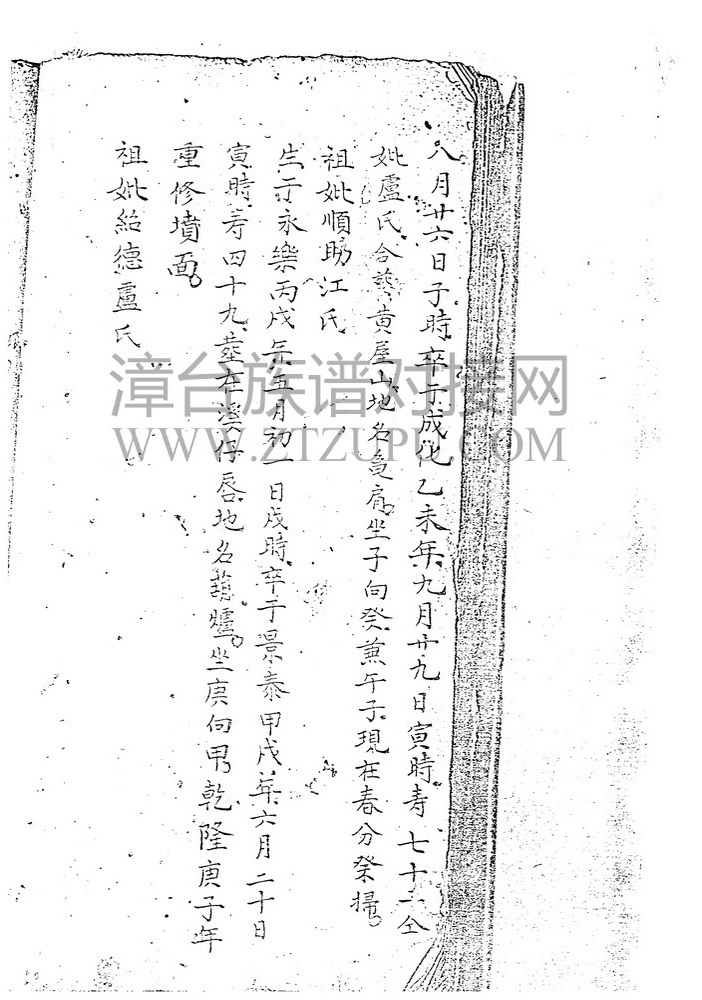 八月廿六日子時卒于成化乙未年九月廿九日寅時寿七十二仝
妣盧氏合葬黄屋山地名龟肩坐子向癸兼午子現在春分祭掃
祖妣順助江氏
生于永樂丙戌年五月初一日戌時卒于景泰甲戌年六月二十日
寅時寿四十九葬在溪仔唇地名葫爐坐庚向甲乾隆庚子年
重修墳面
祖妣紹德盧氏
漳台族谱对接网
WWW.ZTZUPU.COM